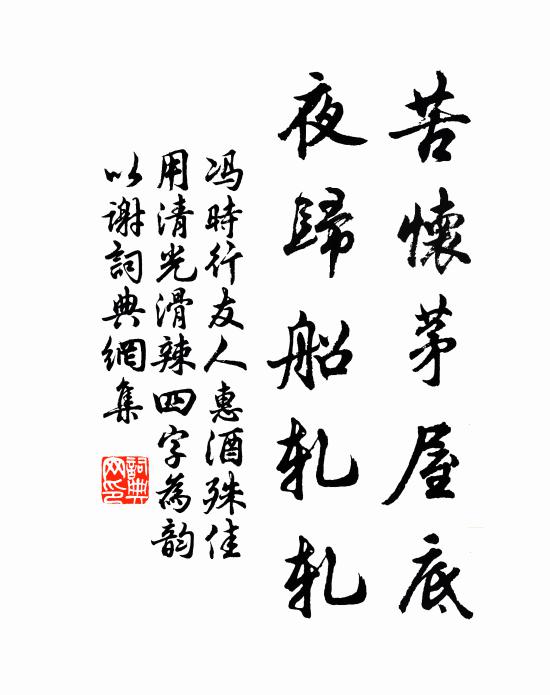 苦懷茅屋底
夜歸船軋軋
冯時行友人惠酒殊佳
用清光滑辣四字為韵
以謝詞典網集
詞典
网印